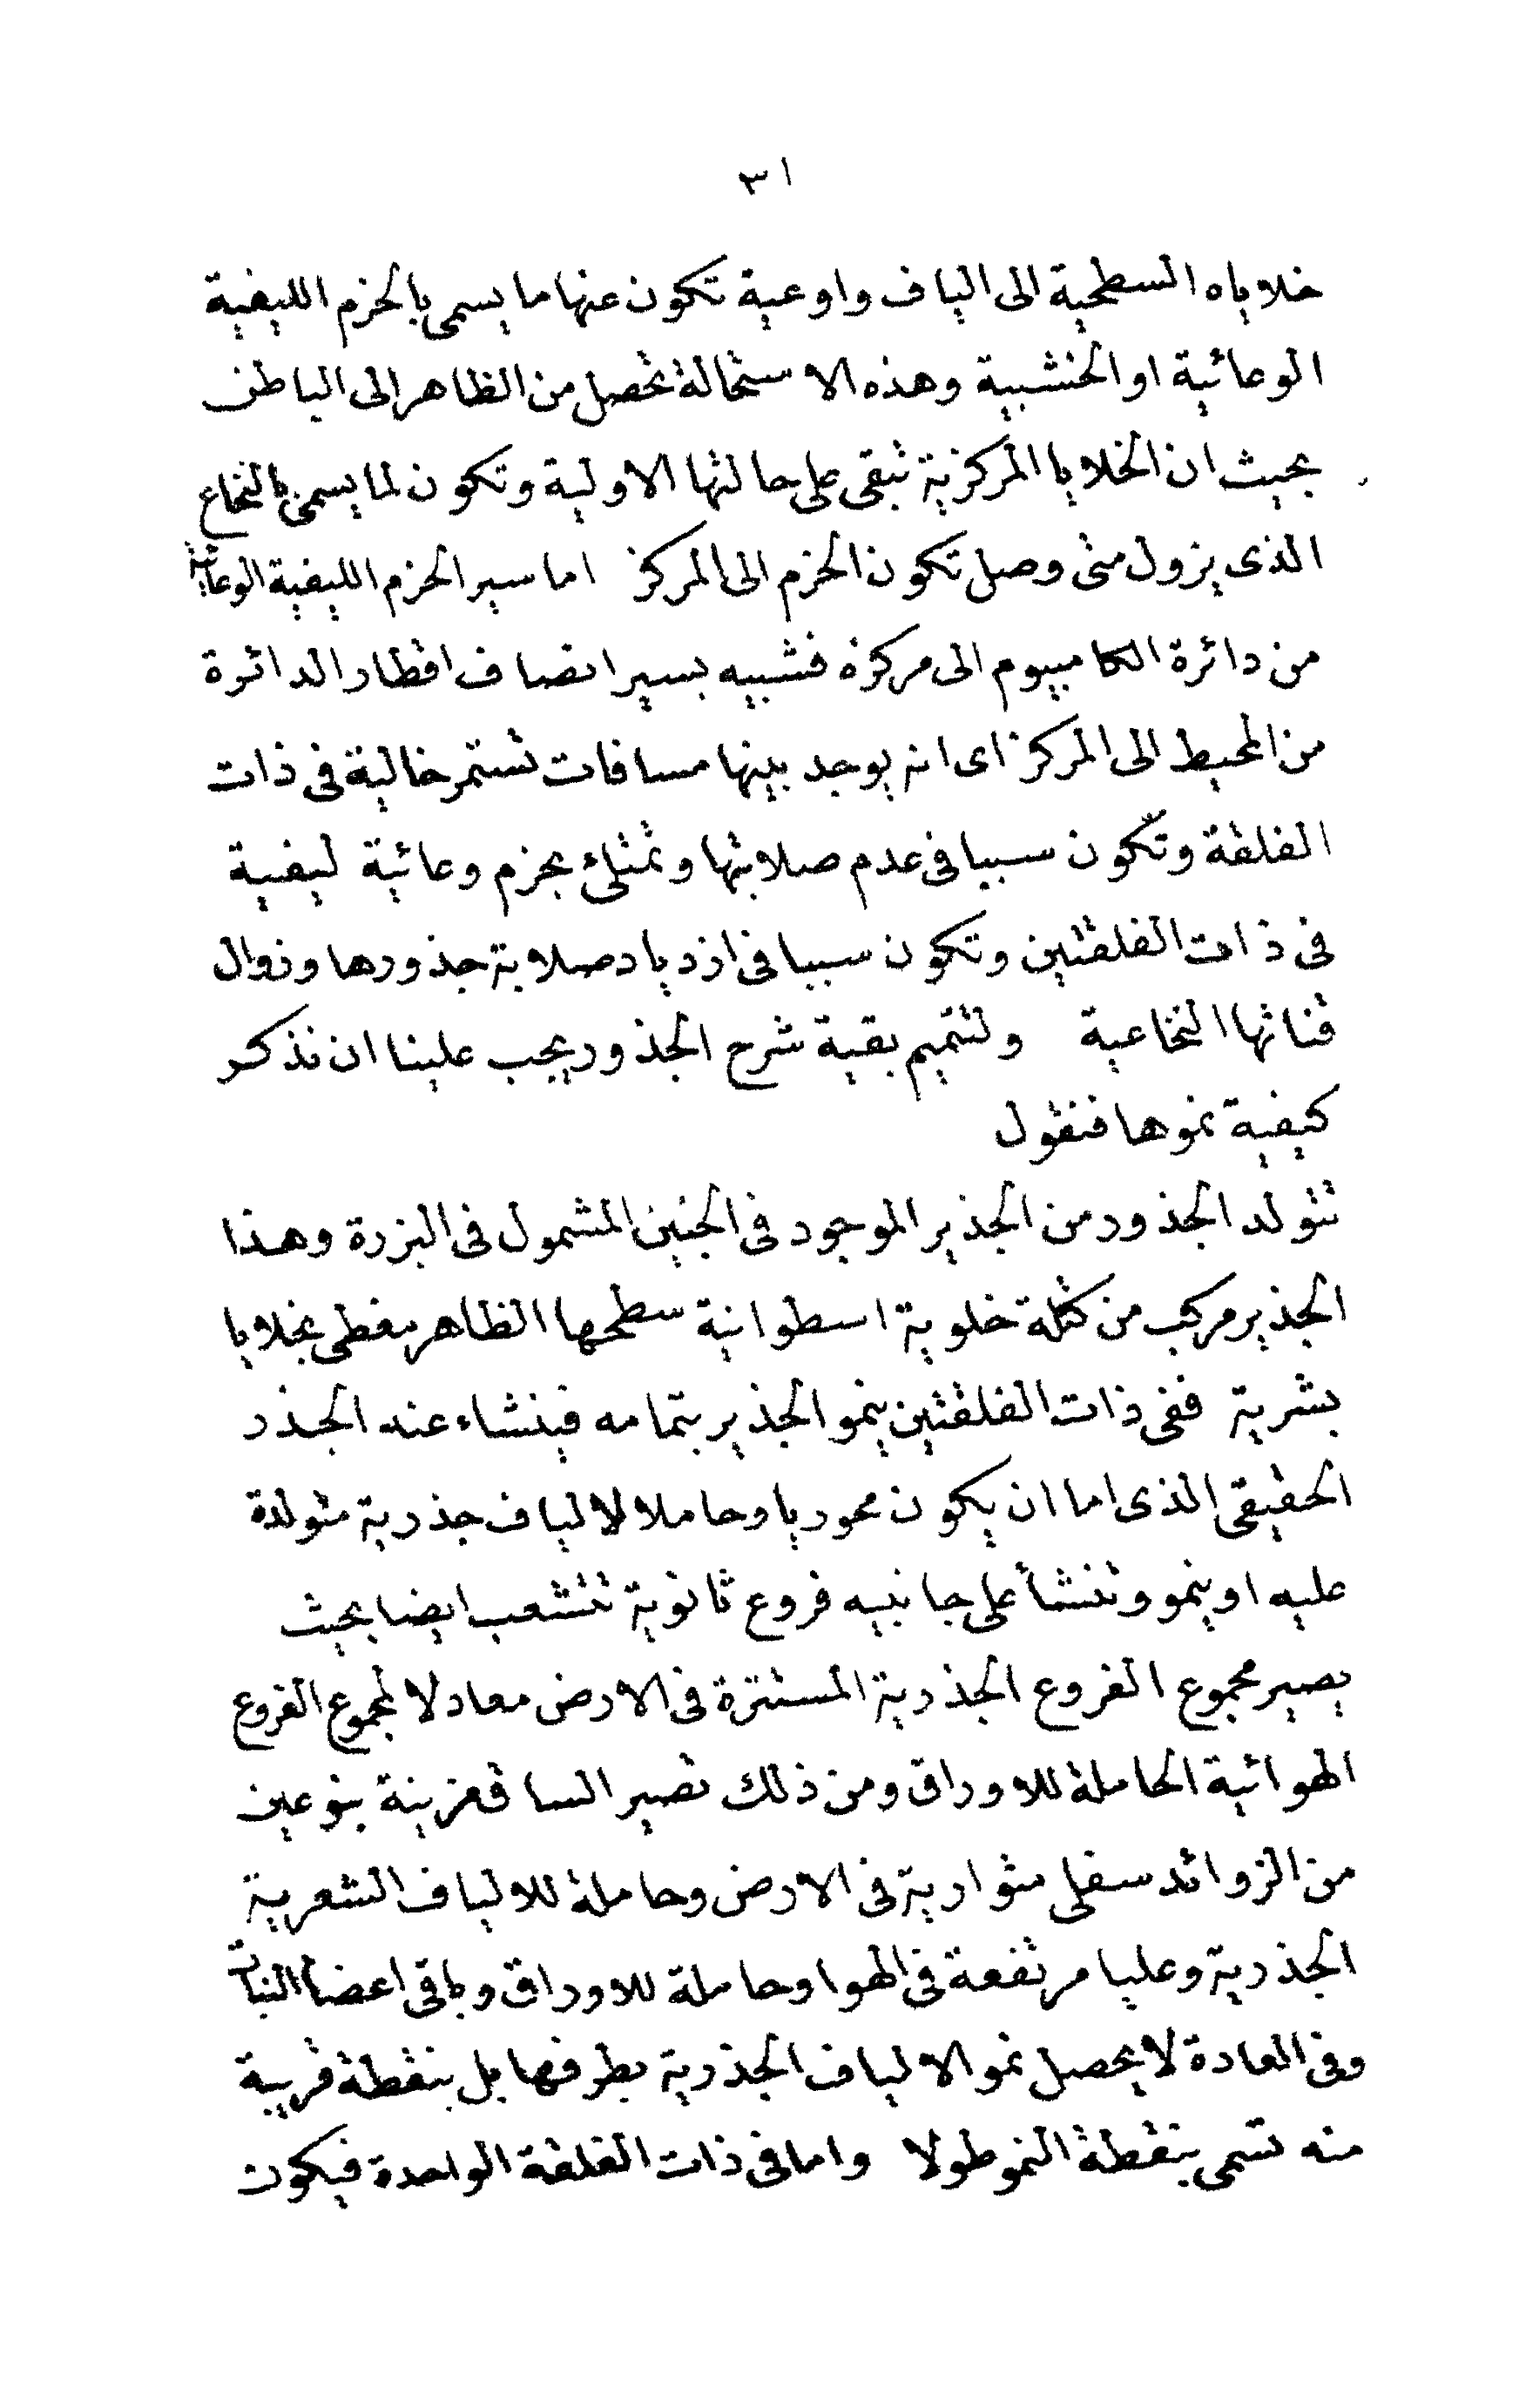 ٣١
خلاياه السطحية الى الياف واوعية تكون عنها ما يسمى بالحزم الليفية
الوعائية او الخشبية وهذه الاستحالة تحصل من الظاهر الى الباطن
بحيث ان الخلايا المركزية تبقى على حالتها الاولية وتكون لما يسمى بالنخاع
الذى يزول متى وصل تكون الحزم الى المركز اما سير الحزم الليفية الوعائية
من دائرة الكامبيوم الى مركزه فشبيه بسير انصاف اقطار الدائرة
من المحيط الى المركز اى انه يوجد بينها مسافات تستمر خالية فى ذات
الفلقة وتكون سببا فى عدم صلابتها وتمتلئ بحزم وعائية ليفية
فى ذات الفلقتين وتكون سببا فى ازدياد صلابة جذورها وزوال
قناتها النخاعية ولتتميم بقية شرح الجذور يجب علينا ان نذكر
كيفية نموها فنقول
تتولد الجذور من الجذير الموجود فى الجنين المشمول فى البزرة وهذا
الجذير مركب من كتلة خلوية اسطوانية سطحها الظاهر مغطى بخلايا
بشرية ففى ذات الفلقتين ينمو الجذير بتمامه فينشاء عنه الجذر
الحقيقى الذى اما ان يكون محوريا وحاملا لالياف جذرية متولدة
عليه او ينمو وتنشأ على جانبيه فروع ثانوية تتشعب ايضا بحيث
يصير مجموع الفروع الجذرية المستترة فى الارض معادلا لمجموع الفروع
الهوائية الحاملة للاوراق ومن ذلك تصير الساق مزينة بنوعين
من الزوائد سفلى متوارية فى الارض وحاملة للالياف الشعرية
الجذرية وعليا مرتفعة فى الهوا وحاملة للاوراق وباقى اعضا النبات
وفى العادة لا يحصل نمو الالياف الجذرية بطرفها بل بنقطة قريبة
منه تسمى بنقطة النمو طولا واما فى ذات الفلقة الواحدة فيكون